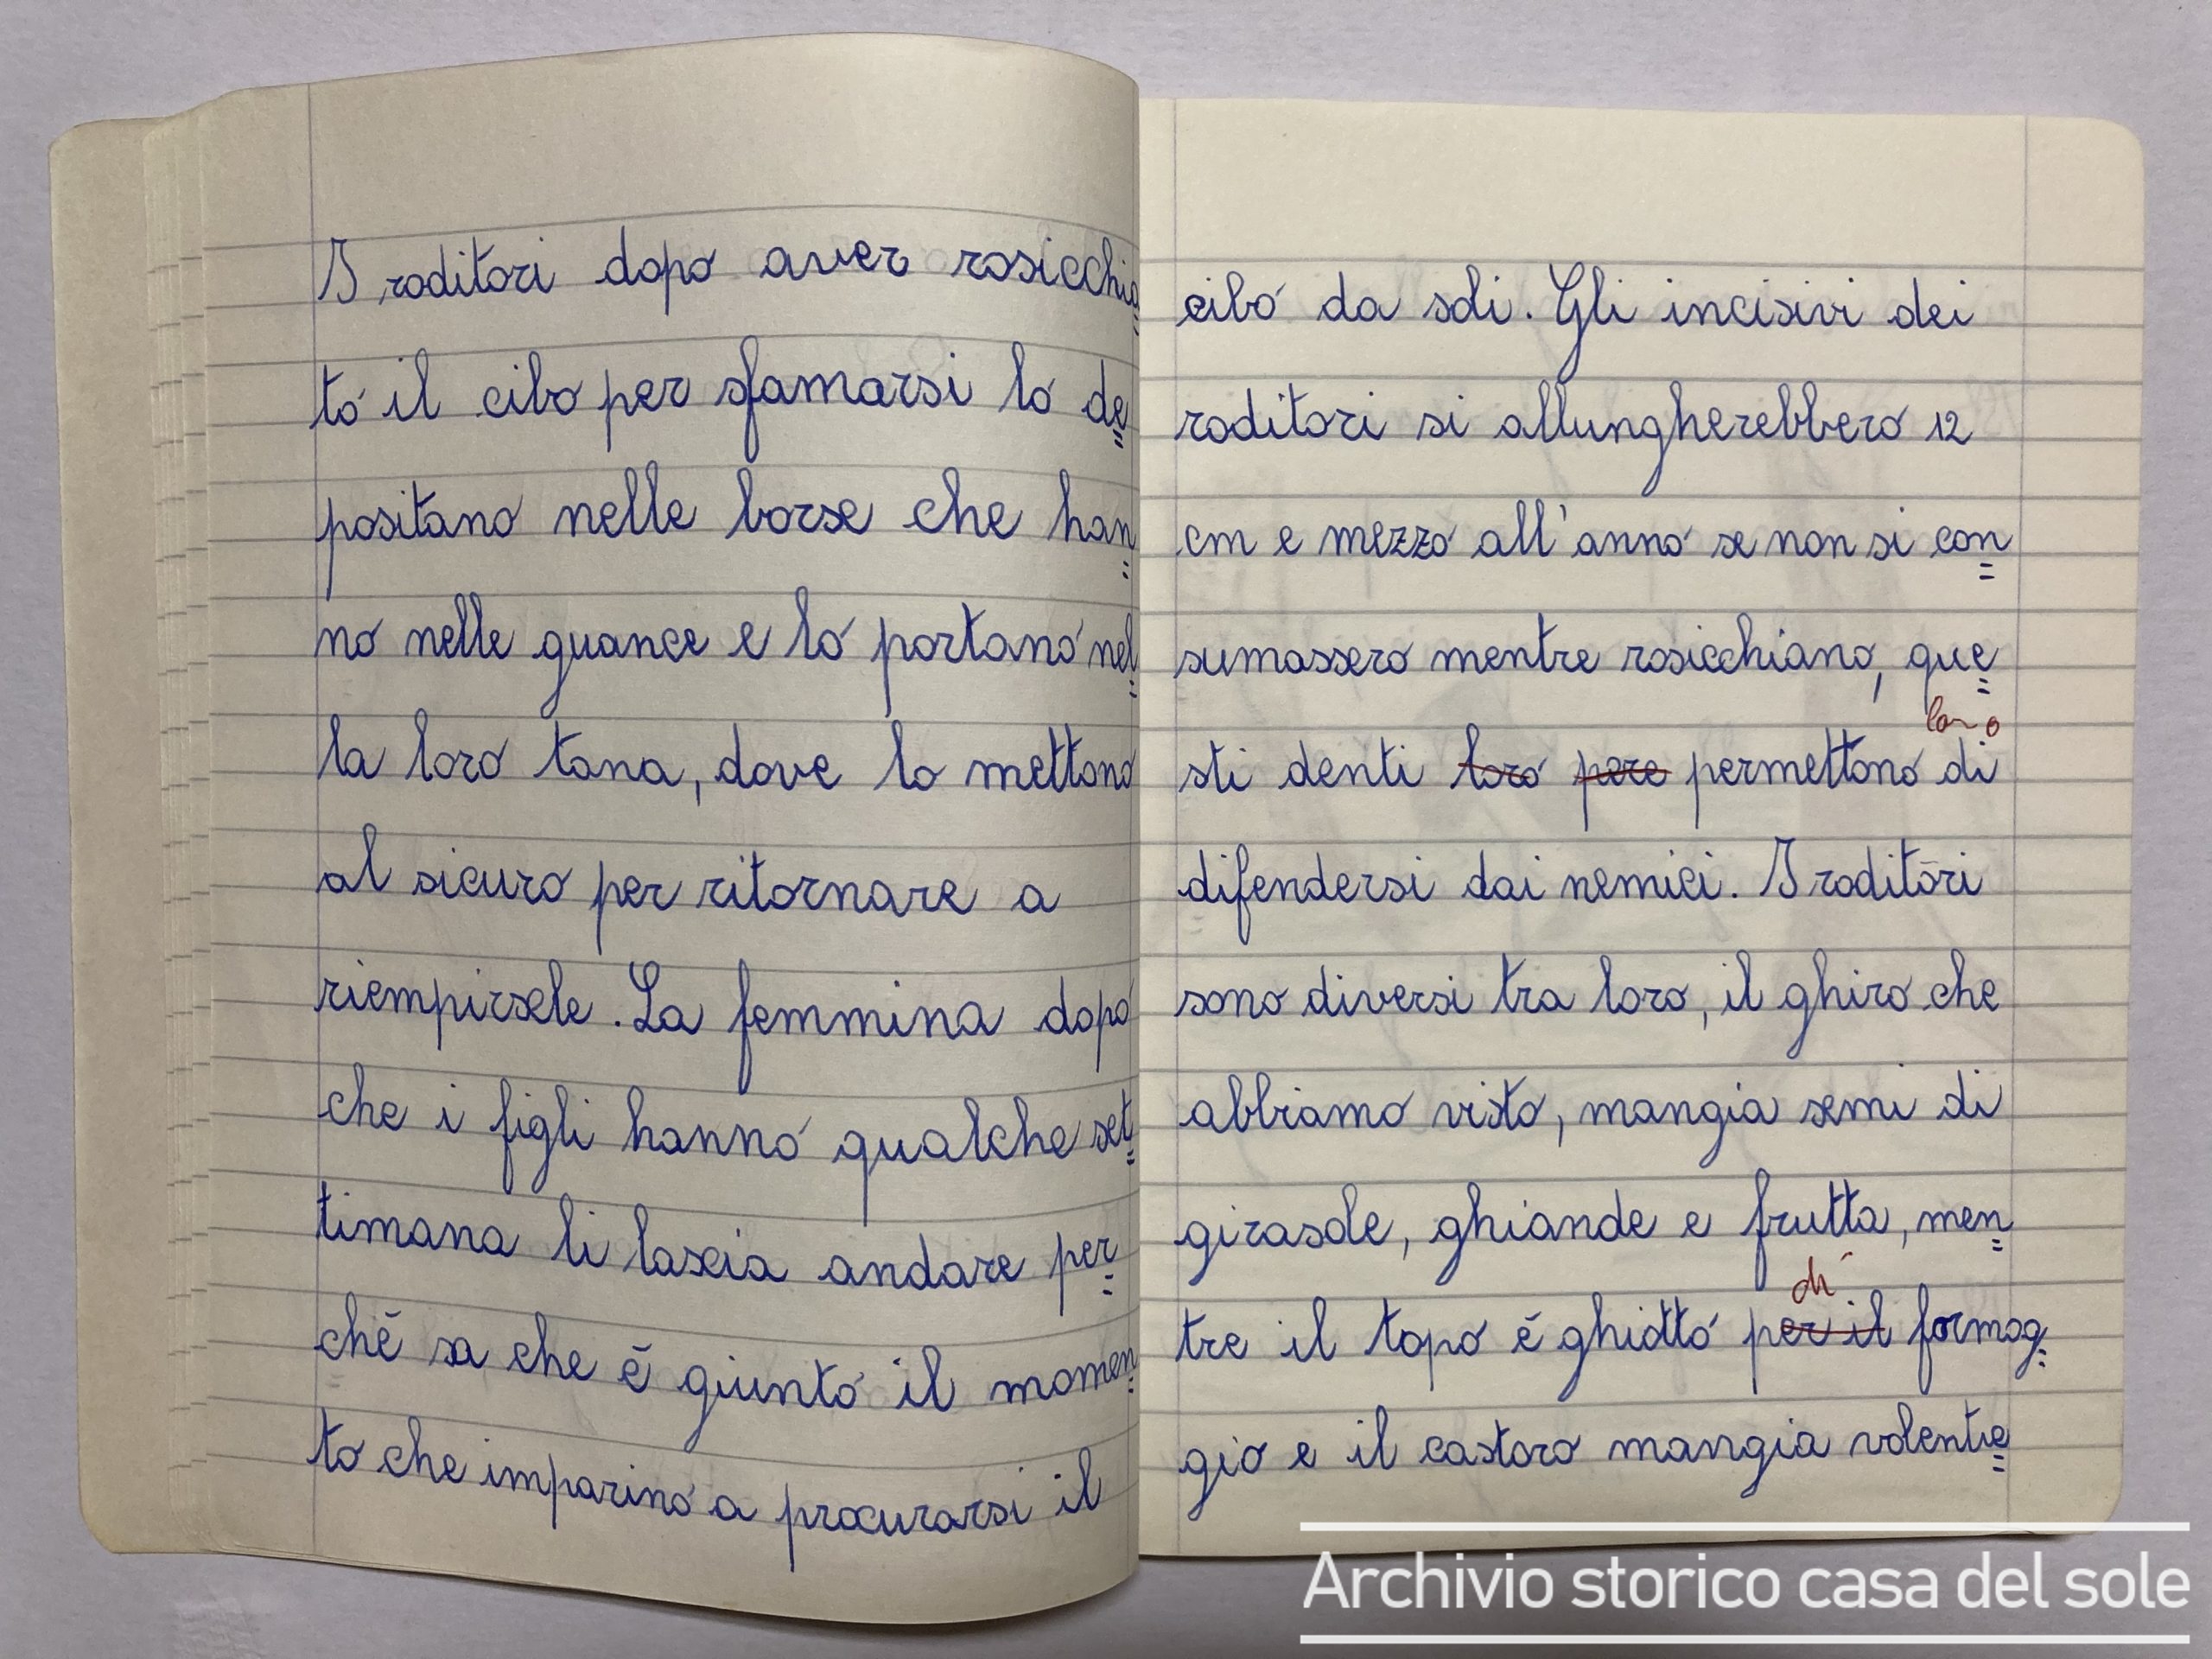 I roditori dopo aver rosicchia=
to il cibo per sfamarsi lo de=
positano nelle borse che han=
no nelle guance e lo portano nel=
la loro tana, dove lo mettono
al sicuro per ritornare a
riempirsele. La femmina dopo
che i figli hanno qualche set=
timana li lascia andare per=
ché sa che è giunto il momen=
to che imparino a procurarsi il
cibo da soli. Gli incisivi dei
roditori si allungherebbero 12
cm e mezzo all'anno se non si con=
sumassero mentre rosicchiano, que=
loro
sti denti loro pere permettono di
difendersi dai nemici. I roditori
sono diversi tra loro, il ghiro che
abbiamo visto, mangia semi di
girasole, ghiande e frutta, men=
di
tre il topo è ghiotto per il formag=
gio e il castoro mangia volentie=
Archivio storico casa del sole